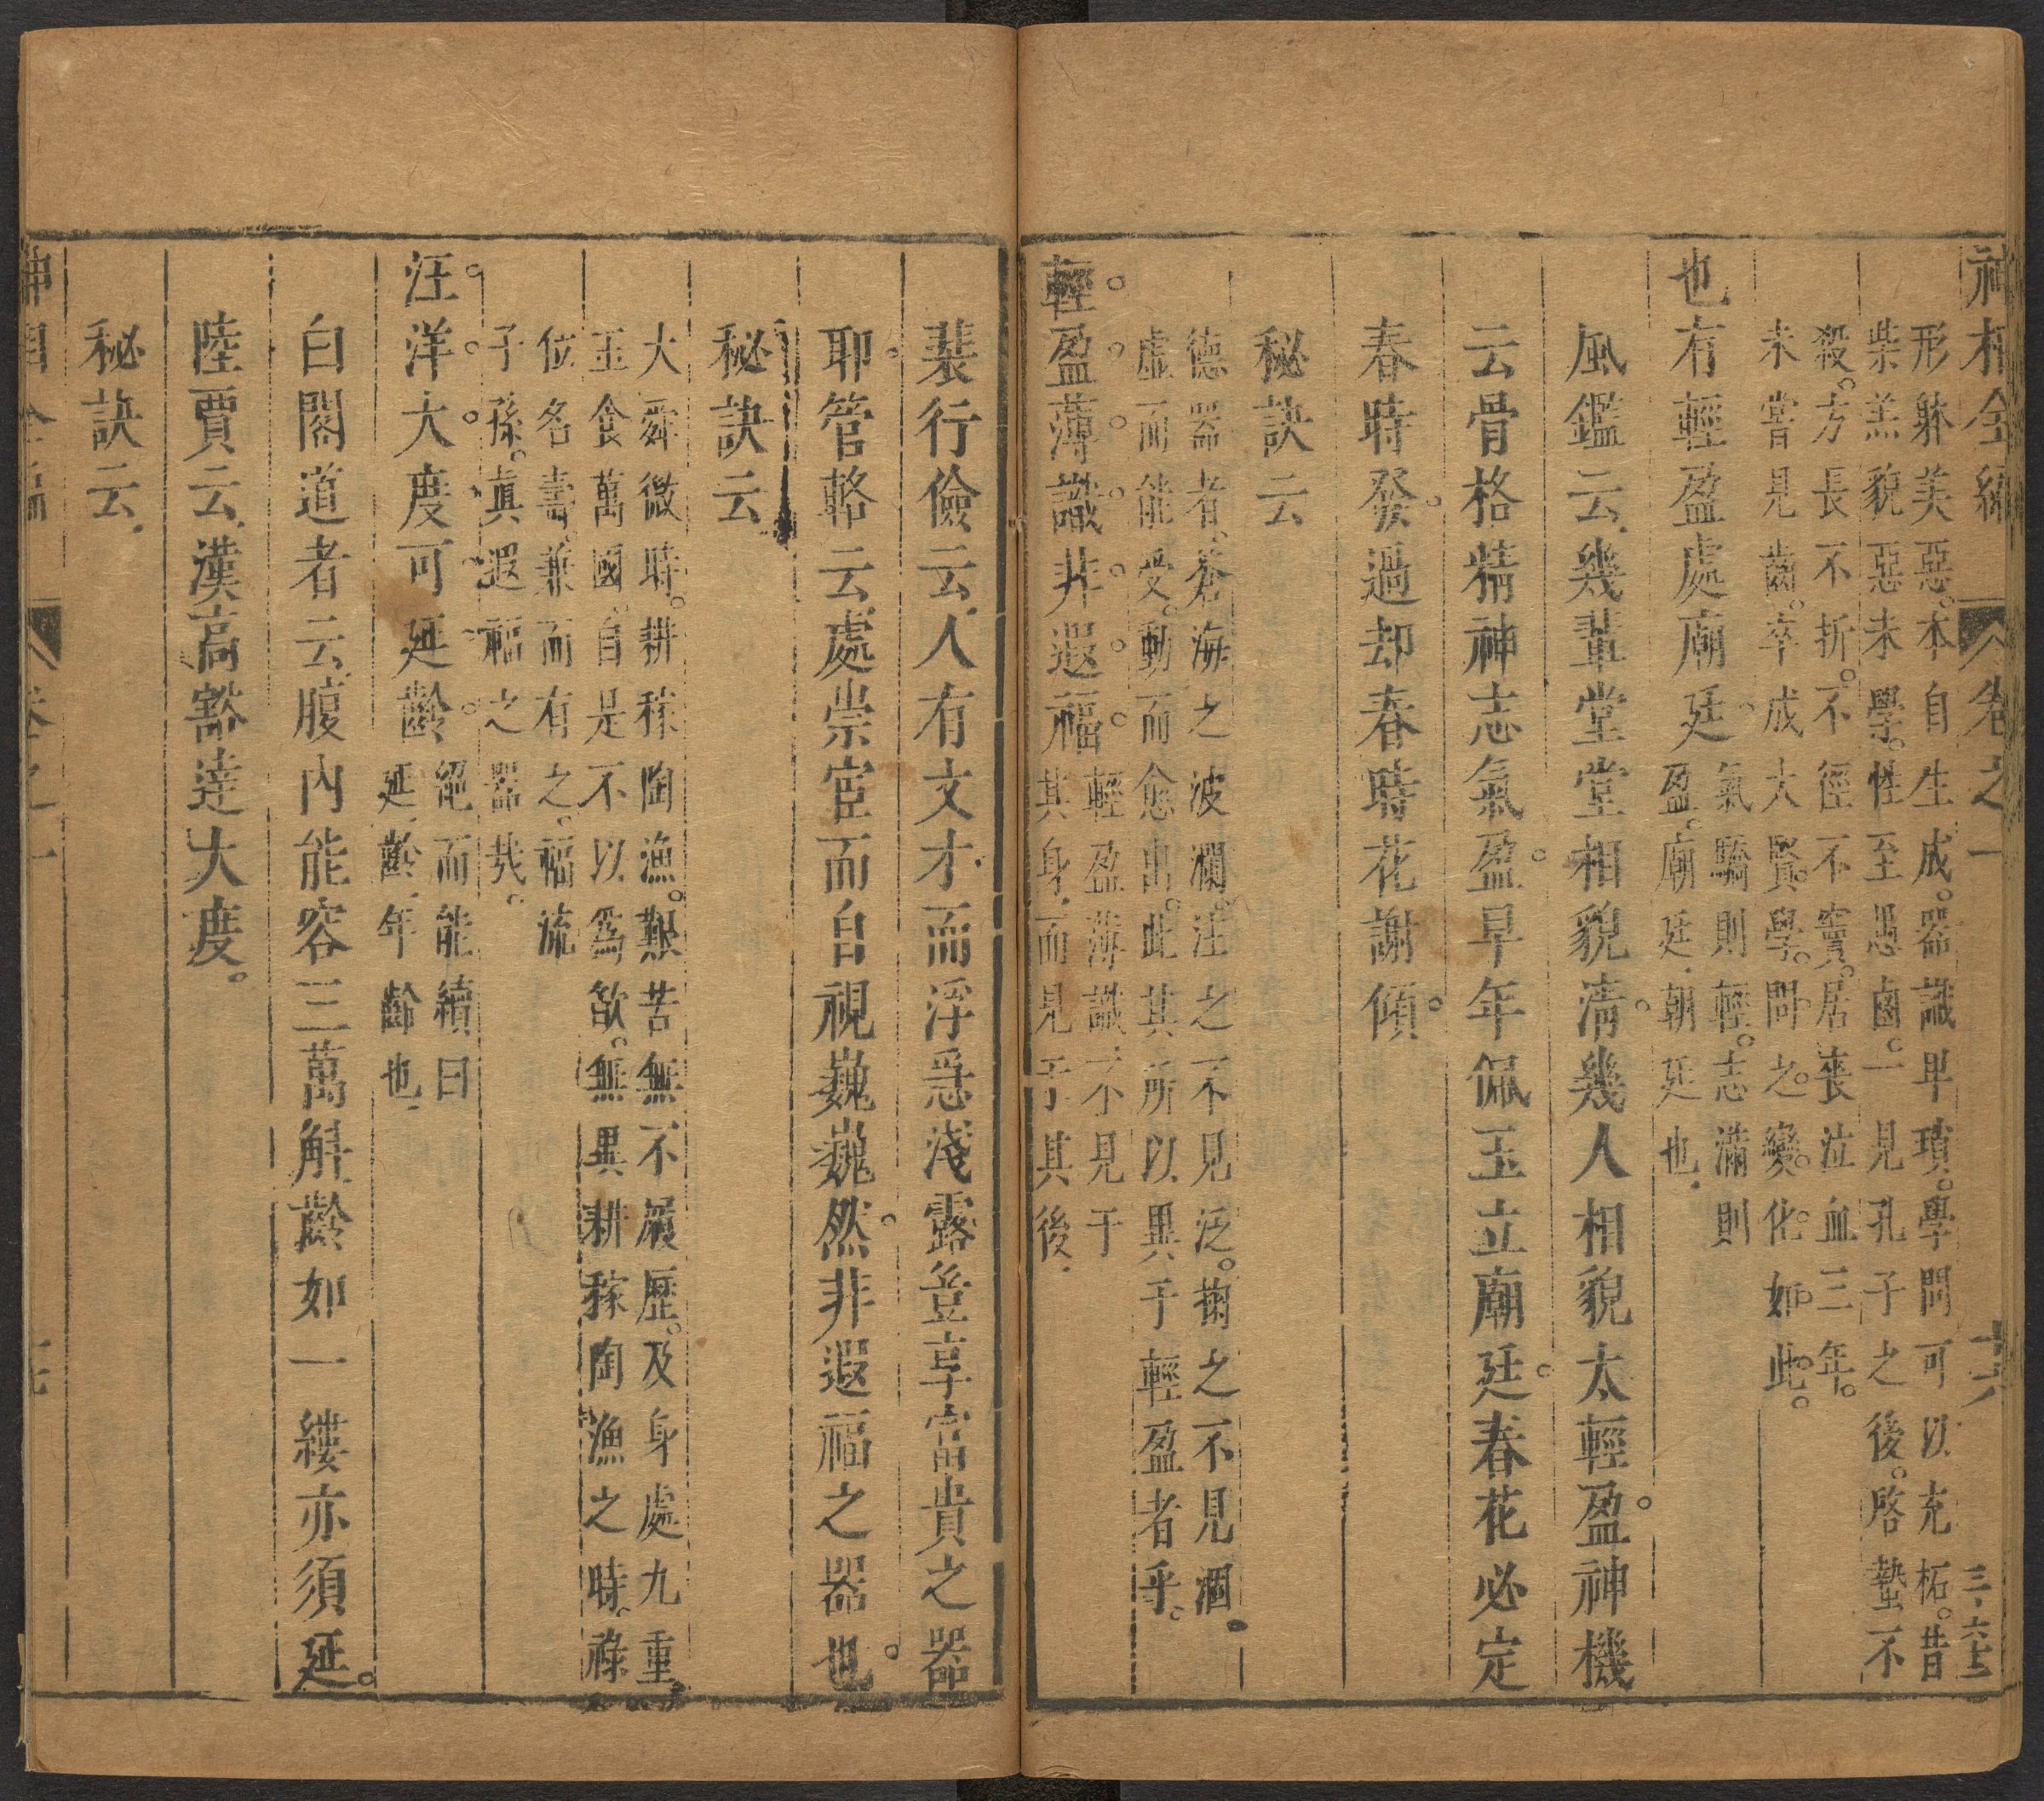 神相全編 卷之一 十六 三六十三
形躰美惡。本自生成。器識卑瑣。學問可以充柘。昔
柴羔貌惡未學。性至愚鹵。一見孔子之後。啓蟄不
殺。方長不折。不徑不竇。居喪泣血三年。
未嘗見齒。卒成大賢。學問之變化如此。
也有輕盈處廟廷。
氣驕則輕。志滿則
盈。廟廷、朝廷也、
風鑑云、幾輩堂堂相貌淸。幾人相貌太輕盈。神機
云骨格精神志氣盈。早年佩玉立廟廷。春花必定
春時發。過却春時花謝傾。
秘訣云
德器者、蒼海之波瀾。注之不見泛。掬之不見涸。
虛而能受。動而愈出。此其所以異于輕盈者乎。
輕盈薄識非遐福。
輕盈薄識、不見于
其身、而見于其後、
裴行儉云、人有文才而浮爲淺露豈享富貴之器
耶。管輅云處崇宦而自視巍巍然。非遐福之器也。
秘訣云、
大舜微時。耕稼陶漁。艱苦無不屨歷。及身處九重。
玉食萬國。自是不以爲歆。無異耕稼陶漁之時。祿
位名壽。兼而有之。福流
子孫。眞遐福之器哉。
汪洋大度可延齡。
絕而能續曰
延、齡、年齡也、
白閣道者云、腹內能容三萬斛齡如一縷亦須延。
陸賈云、漢高豁達大度。
秘訣云、
神相全編 卷之一 十七